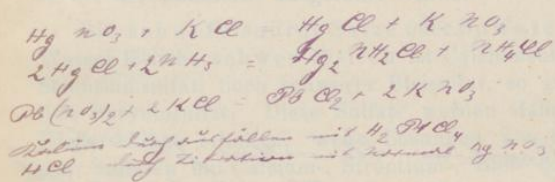 Hg NO3 + K Cl Hg Cl + K NO3
2 Hg Cl + 2 NH3 = Hg2 NH2 Cl + NH4 Cl
Pb (NO3)2 + 2 K Cl = Pb Cl2 + 2 K NO3
Kalium durch ausfällen mit H2 Pt Cl4
H Cl durch Titration mit normal Ag NO3